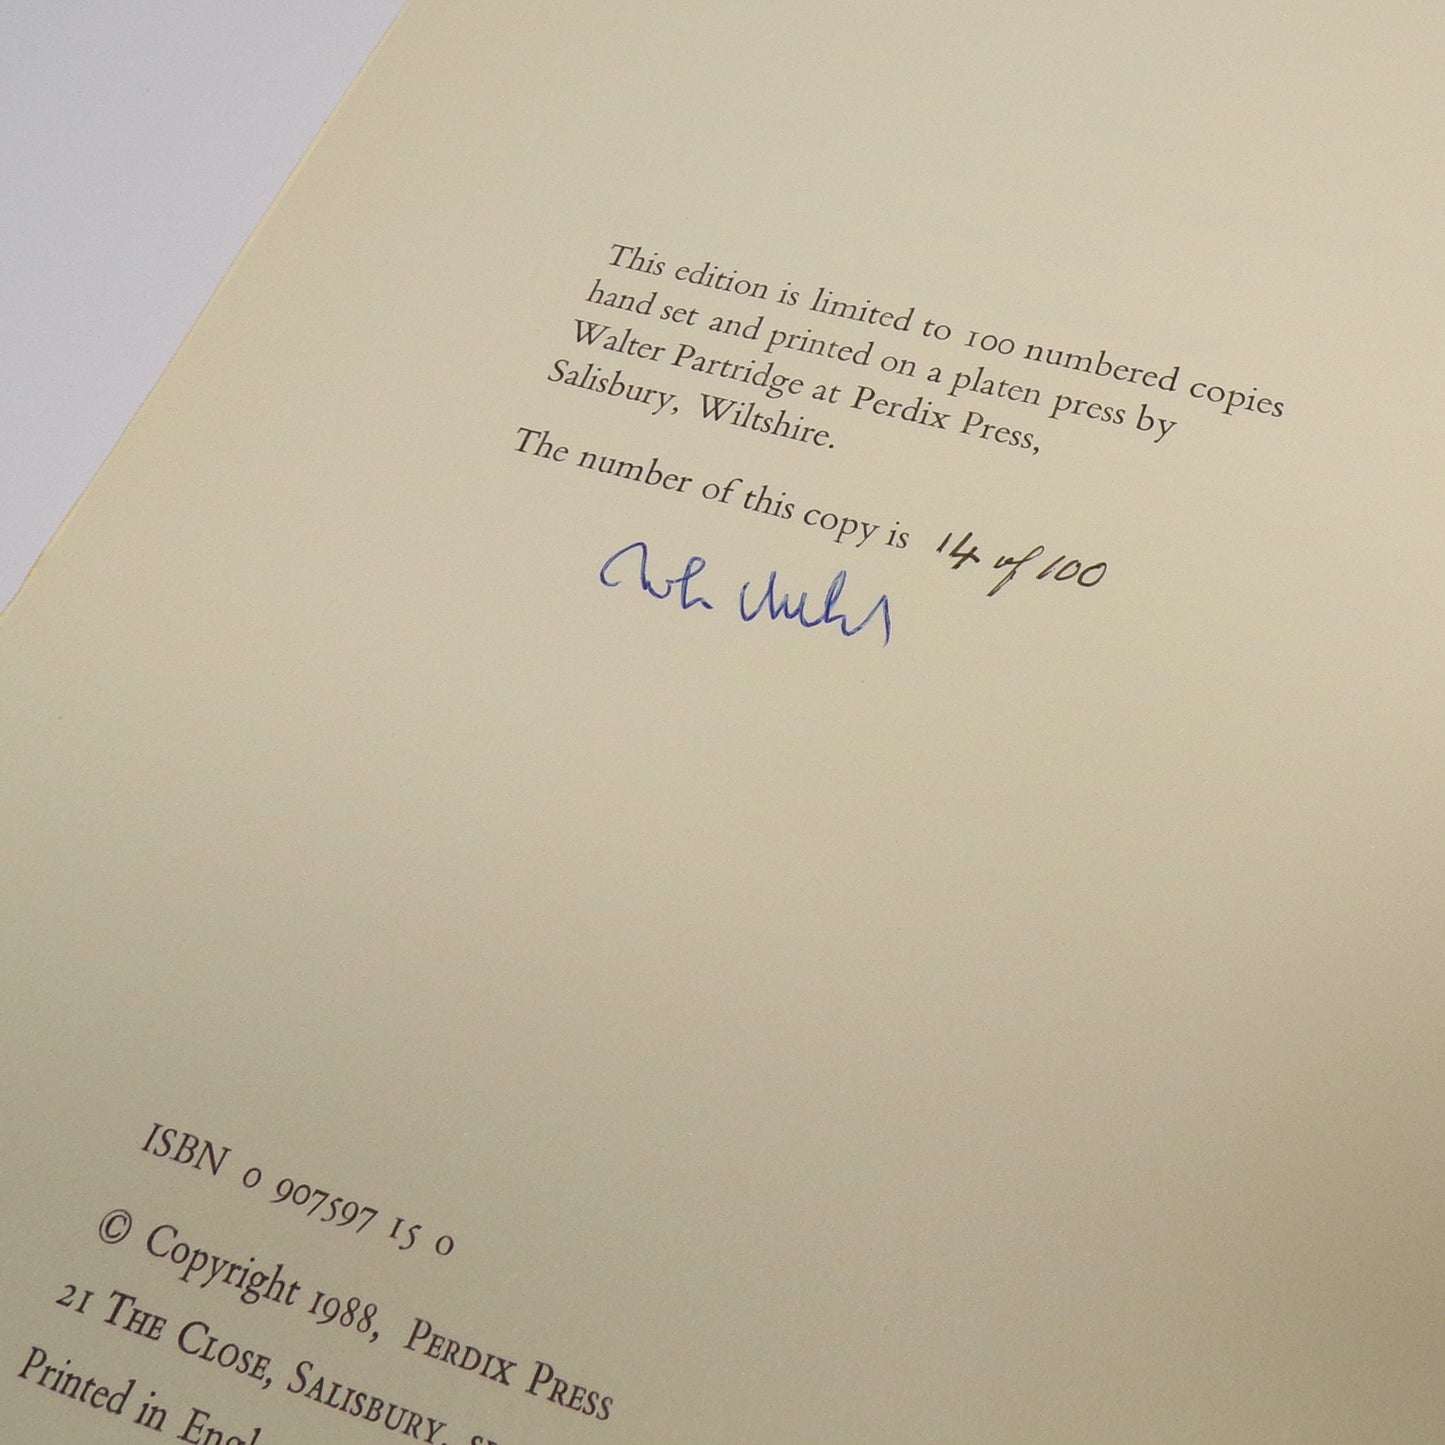 This edition is limited to 100 numbered copies
hand set and printed on a platen press by
Walter Partridge at Perdix Press,
Salisbury, Wiltshire.
The number of this copy is 14 of 100
ISBN 0 907597 15 0
© Copyright 1988, PERDIX PRESS
21 THE CLOSE, SALISBURY,
Printed in